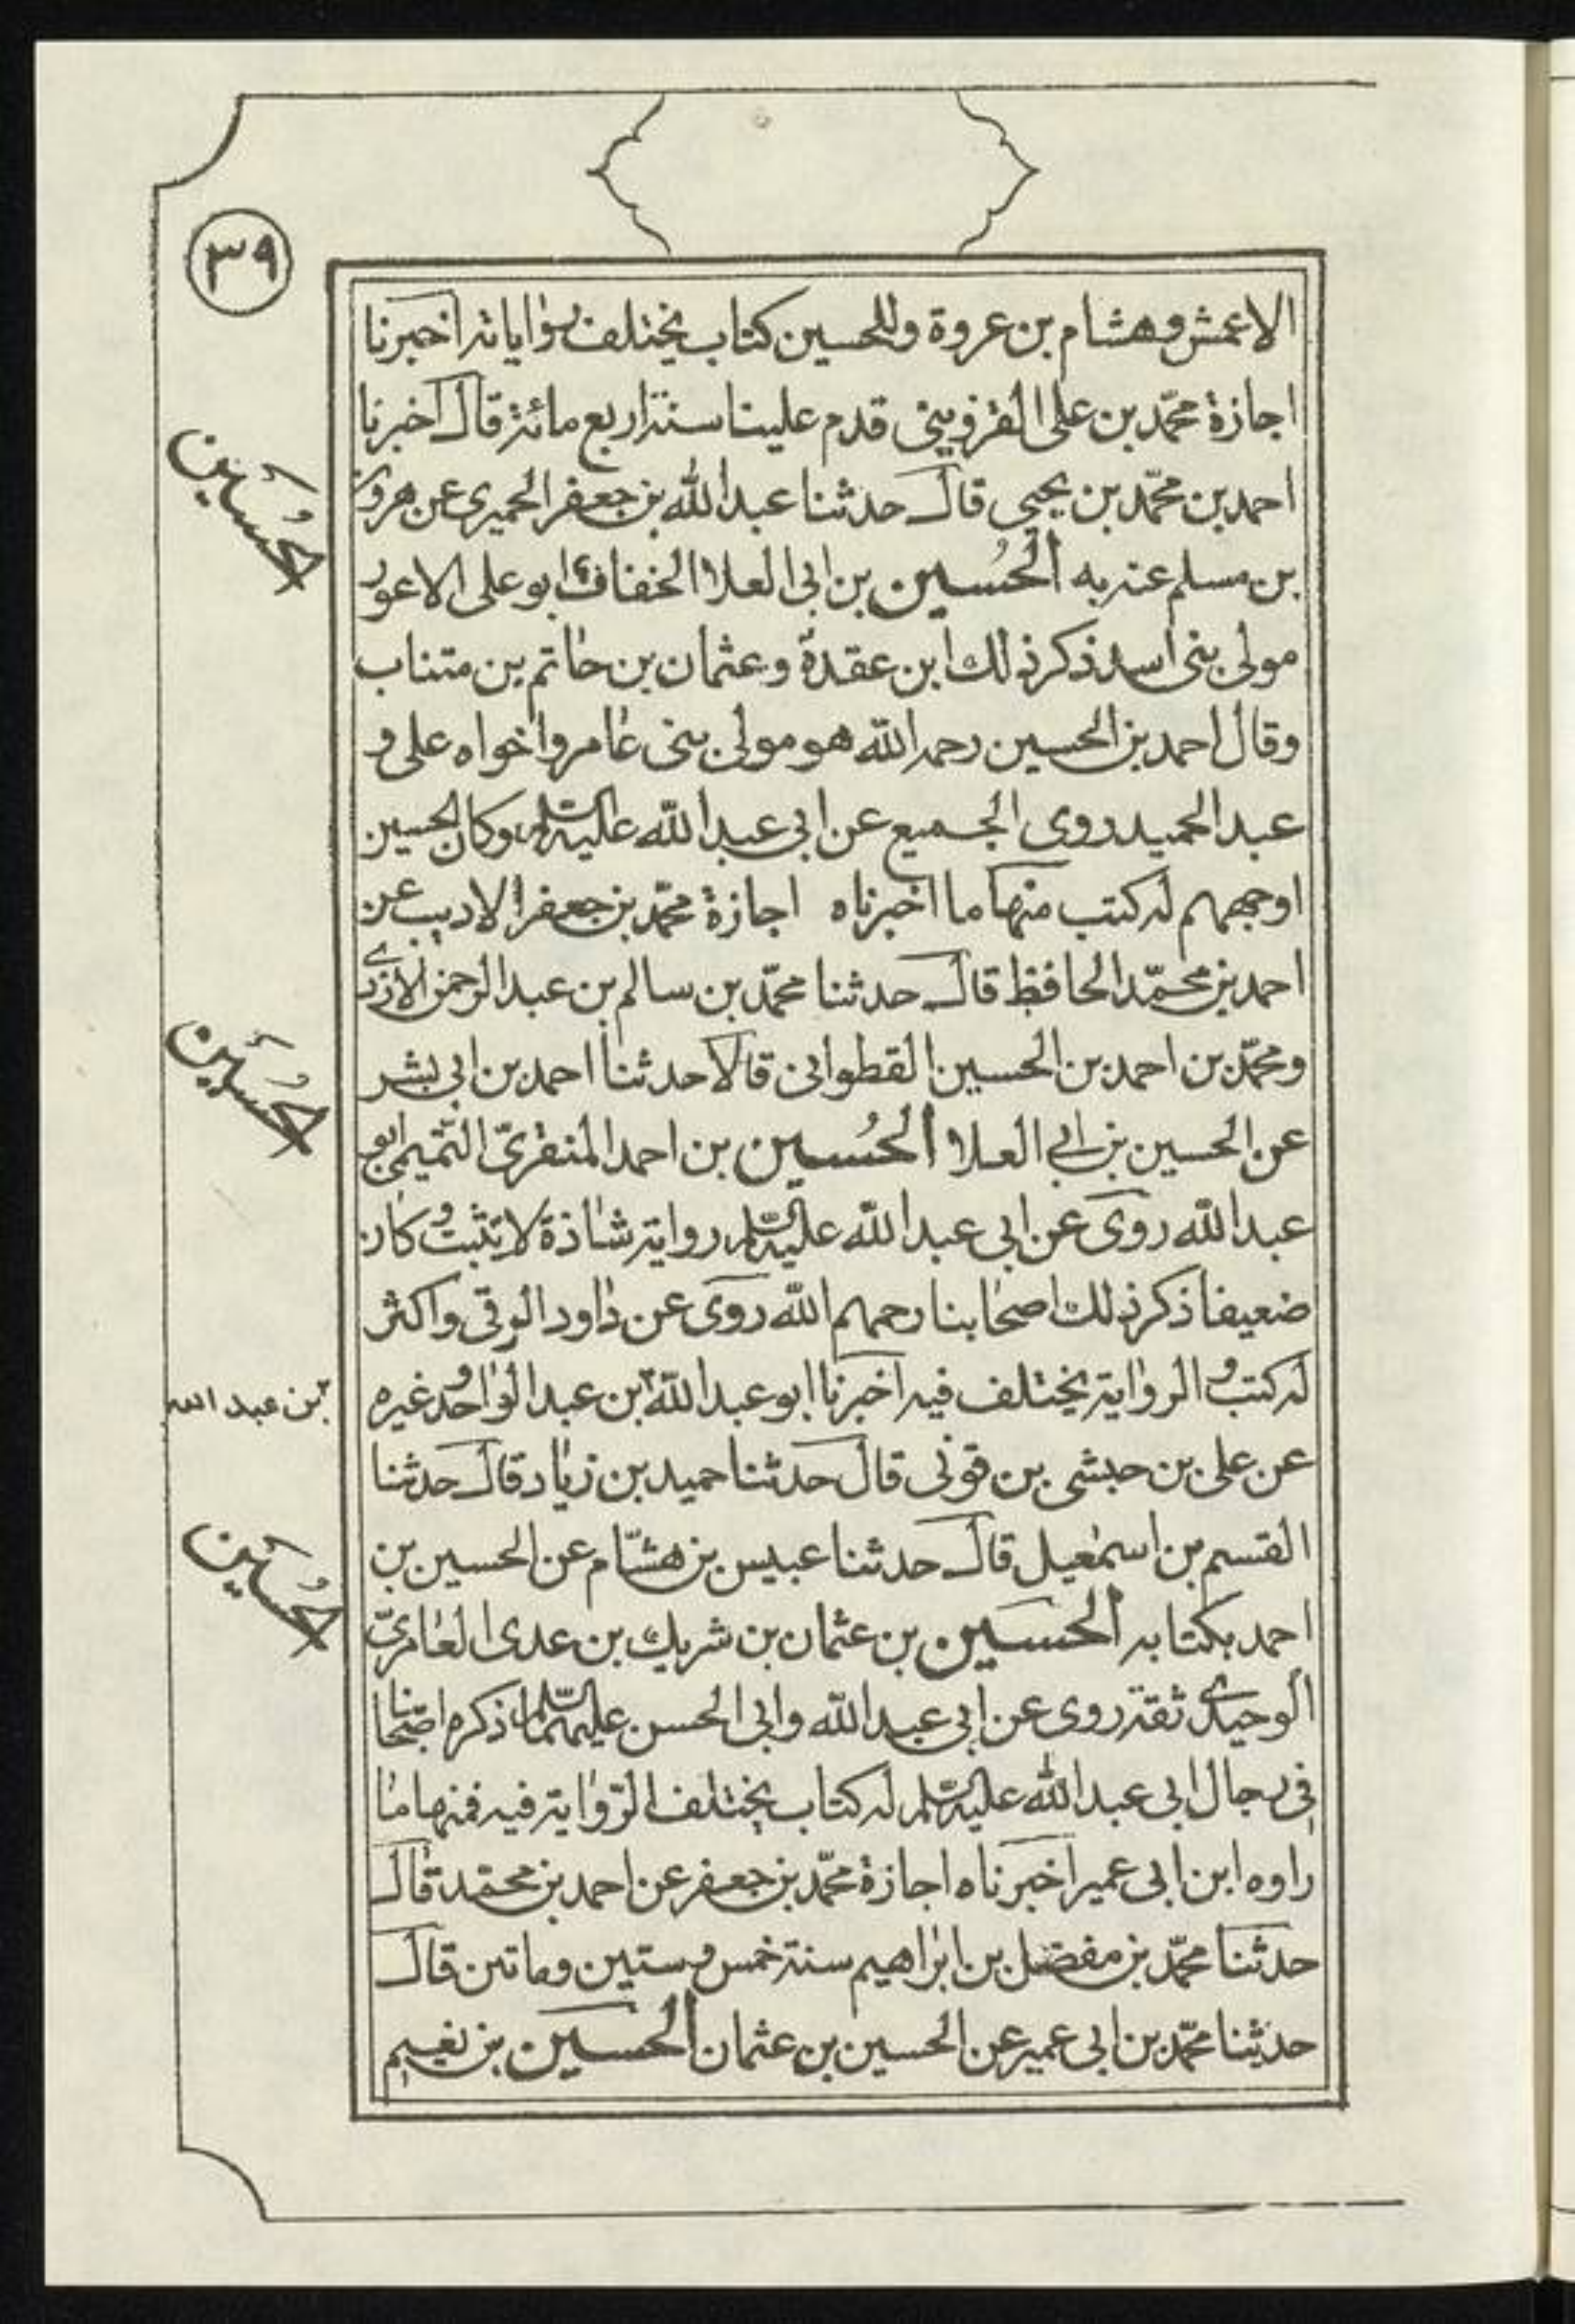 ٣٩
الاعمش وهشام بن عروة وللحسين كتاب يختلف رواياته اخبرنا
اجازة محمّد بن على القزوينى قدم علينا سنة اربع مائة قال اخبرنا
احمد بن محمّد بن يحيى قال حدثنا عبد الله بن جعفر الحميرى عن هرون
بن مسلم عنه به الحُسين بن ابى العلاء الخفاف ابو على الاعور
مولى بنى اسد ذكر ذلك ابن عقدة وعثمان بن حاتم بن متناب
وقال احمد بن الحسين رحمه الله هو مولى بنى عامر واخواه على و
عبد الحميد روى الجميع عن ابى عبد الله عليه السّلم وكان الحسين
اوجههم له كتب منها ما اخبرناه اجازة محمّد بن جعفر الاديب عن
احمد بن محمّد الحافظ قال حدثنا محمّد بن سالم بن عبد الرحمن الازدى
ومحمّد بن احمد بن الحسين القطوانى قالا حدثنا احمد بن ابى بشر
عن الحسين بن ابى العلا الحُسين بن احمد المنقرىّ التميمى ابو
عبد الله روى عن ابى عبد الله عليه السّلم رواية شاذة لا تثبت وكان
ضعيفا ذكر ذلك اصحابنا رحمهم الله روى عن داود الرقى واكثر
له كتب والرواية يختلف فيه اخبرنا ابو عبد الله بن عبد الواحد وغيره
عن على بن حبشى بن قونى قال حدثنا حميد بن زياد قال حدثنا
القسم بن اسمعيل قال حدثنا عبيس بن هشّام عن الحسين بن
احمد بكتابه الحسَين بن عثمان بن شريك بن عدى العامرىّ
الوحيدى ثقة روى عن ابى عبد الله وابى الحسن عليهما السّلم ذكره اصحابنا
فى رجال ابى عبد الله عليه السّلم له كتاب يختلف الرّواية فيه فمنها ما
راوه ابن ابى عمير اخبرناه اجازة محمّد بن جعفر عن احمد بن محمّد قال
حدثنا محمّد بن مفضل بن ابراهيم سنة خمس وستين وماتين قال
حدثنا محمّد بن ابى عمير عن الحسين بن عثمان الحسَين بن نعيم
الحُسَين
الحُسَين
بن عبد الله
الحُسَين